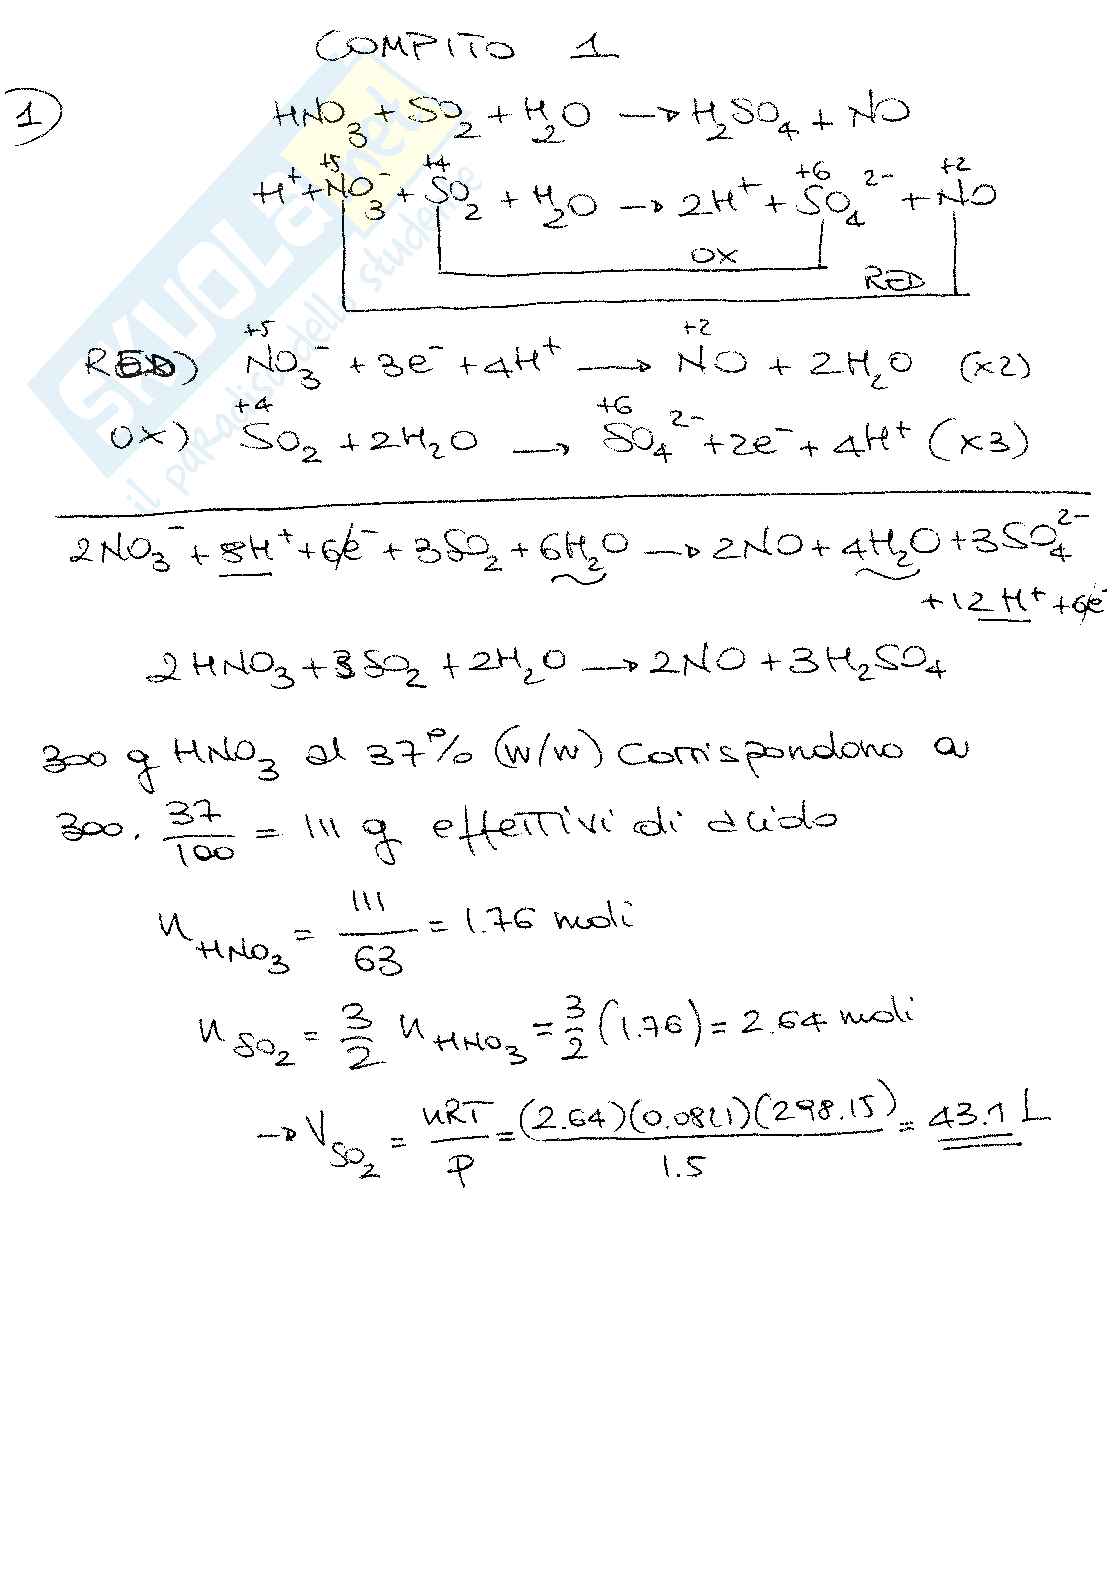 COMPITO 1
1)
HNO₃ + SO₂ + H₂O → H₂SO₄ + NO
+5 +4 +6 +2
H⁺ + NO₃⁻ + SO₂ + H₂O → 2H⁺ + SO₄²⁻ + NO
OX
RED
+5 +2
RED) NO₃⁻ + 3e⁻ + 4H⁺ → NO + 2H₂O (x2)
+4 +6
OX) SO₂ + 2H₂O → SO₄²⁻ + 2e⁻ + 4H⁺ (x3)
2NO₃⁻ + 8H⁺ + 6e⁻ + 3SO₂ + 6H₂O → 2NO + 4H₂O + 3SO₄²⁻
+ 12H⁺ + 6e⁻
2HNO₃ + 3SO₂ + 2H₂O → 2NO + 3H₂SO₄
300 g HNO₃ al 37% (w/w) corrispondono a
300 · 37/100 = 111 g effettivi di acido
n HNO₃ = 111/63 = 1.76 moli
n SO₂ = 3/2 n HNO₃ = 3/2 (1.76) = 2.64 moli
→ V SO₂ = nRT/P = (2.64)(0.0821)(298.15)/1.5 = 43.1 L
SKUOLA.net
il paradiso dello studente